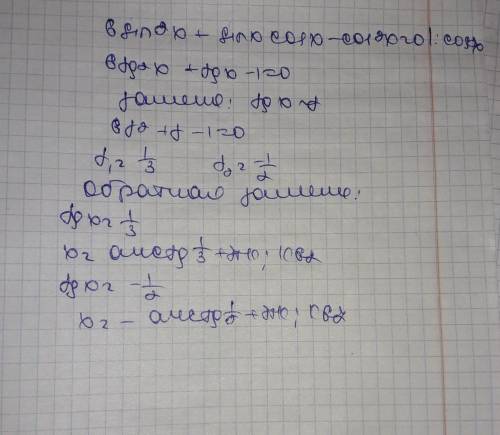 6sin²x + sinx cosx - cos²x=0 |: cos²x
6tg²x + tgx - 1=0
замено: tgx = t
6t² + t - 1=0
t₁ = 1/3 t₂ = -1/2
Обратная замено:
tgx = 1/3
x = arctg 1/3 + πk; k∈Z
tgx = -1/2
x = - arctg 1/2 + πk; k∈Z